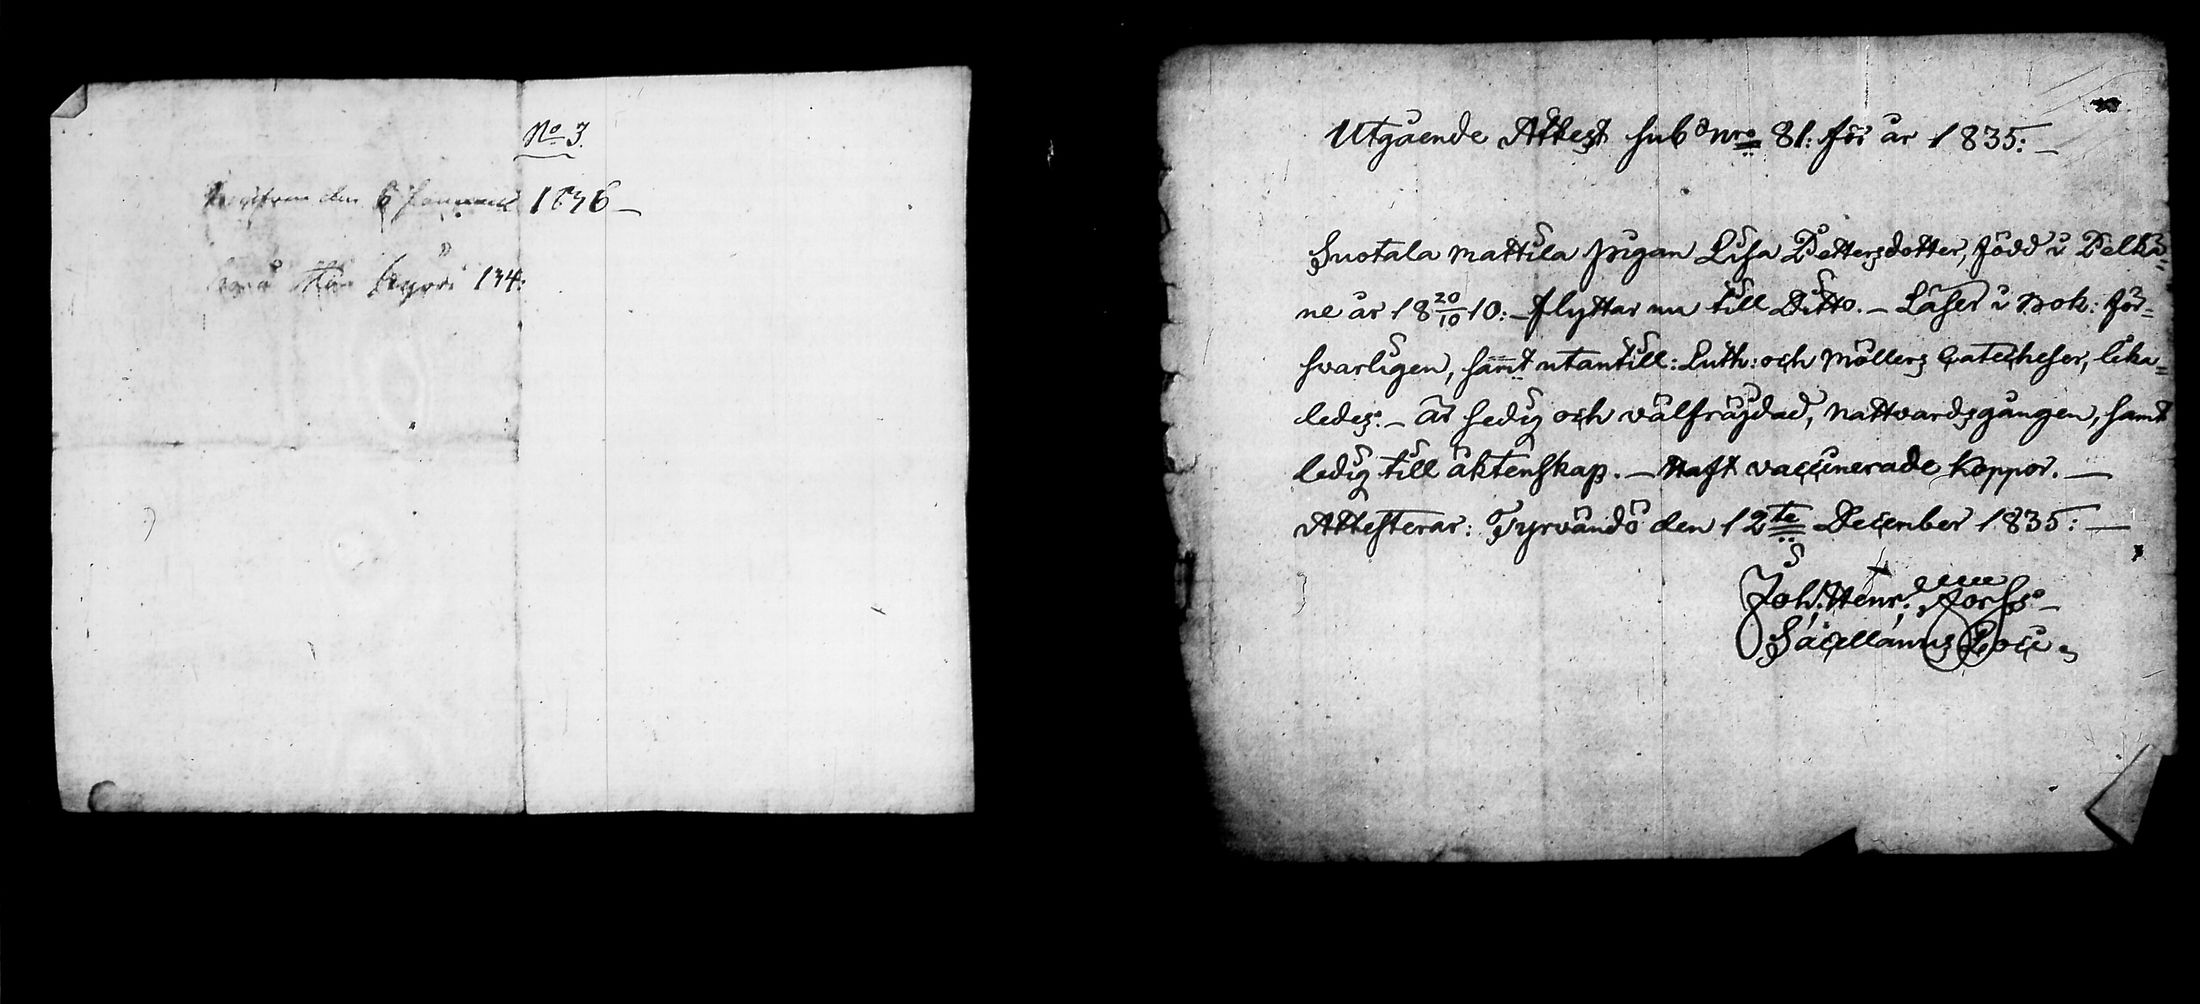 No 3.
den 6 Januarii 1836 —
134:
Utgående Attest sub nro 81: för år 1835: —
Suotala Mattila pigan Lisa Pettersdotter, född i Pelkä=
ne år 18 20/10 10: — flyttar nu till Ditto. — Läser i Bok: för=
svarligen, samt utantill: Luth: och Möllers Catecheser, lika=
ledes: — är sedig och välfräjdad, nattvardsgången, samt
ledig till äktenskap. — Haft vaccinerade koppor. —
Attesterar: Tyrvändö den 12te December 1835: —
Joh. Henr.
Sacellanus Loci